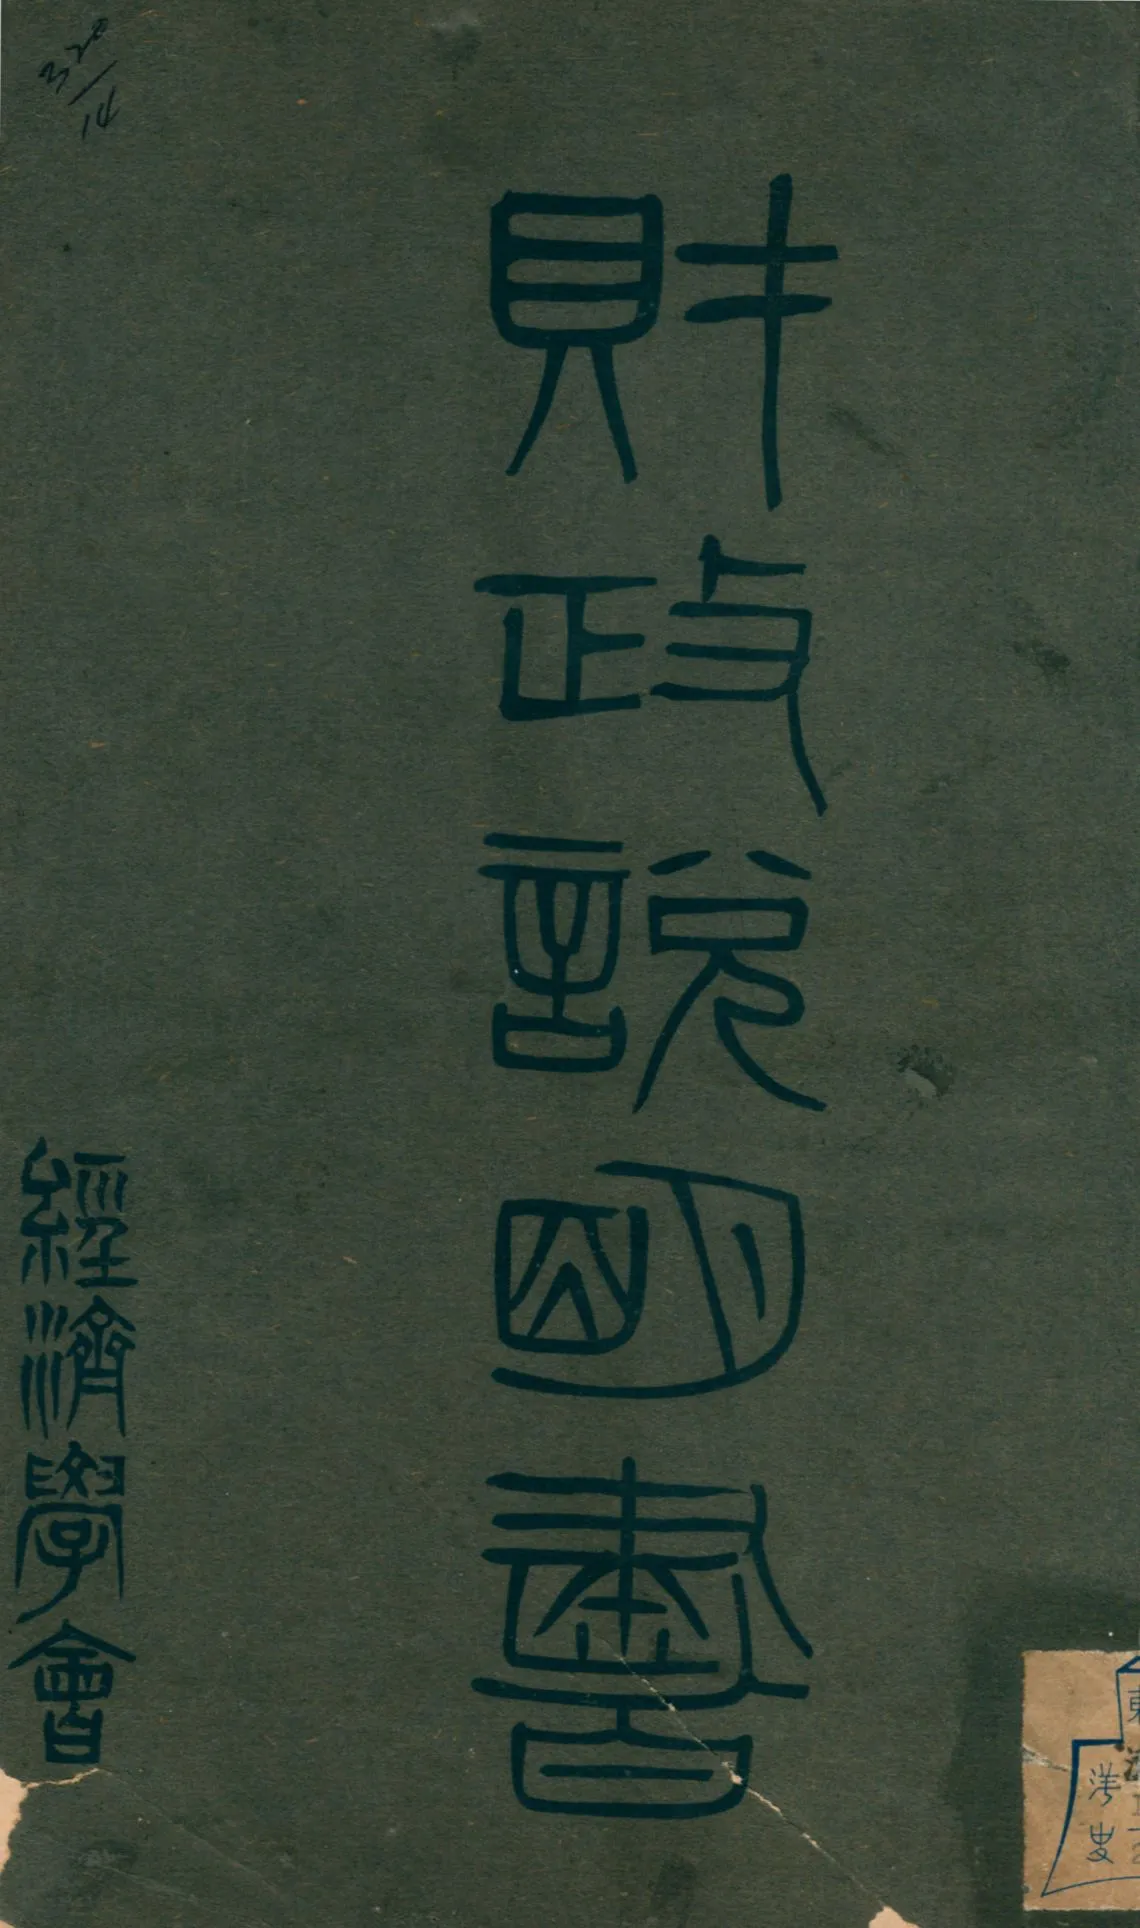 320/14
財政說明書
經濟學會
東
洋史